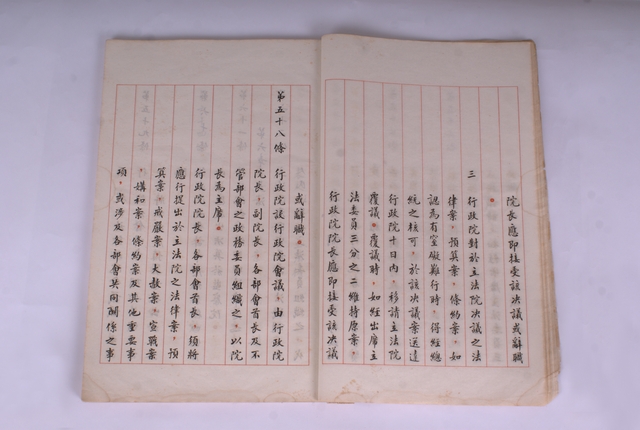 院長應即接受該決議或辭職
。
三 行政院對於立法院決議之法
律案，預算案，條約案，如
認為有窒礙難行時，得經總
統之核可，於該決議案送達
行政院十日內，移請立法院
覆議。覆議時，如經出席立
法委員三分之二維持原案，
行政院院長應即接受該決議
或辭職。
第五十八條 行政院設行政院會議，由行政院
院長，副院長，各部會首長及不
管部會之政務委員組織之，以院
長為主席。
行政院院長，各部會首長，須將
應行提出於立法院之法律案，預
算案，戒嚴案，大赦案，宣戰案
，媾和案，條約案及其他重要事
項，或涉及各部會共同關係之事